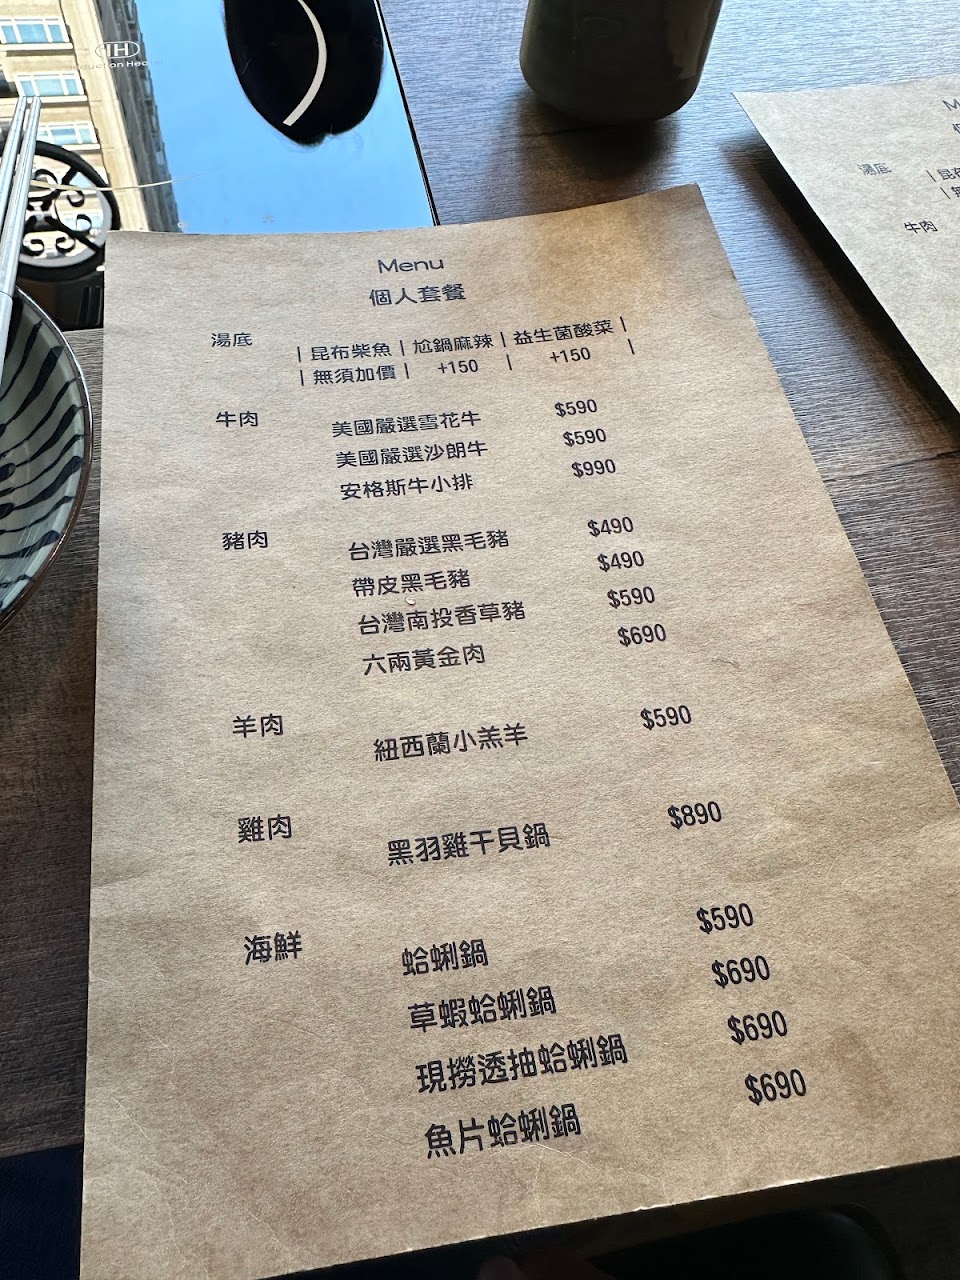 IH
Menu
個人套餐
湯底 | 昆布柴魚 | 尬鍋麻辣 | 益生菌酸菜 |
| 無須加價 | +150 | +150 |
牛肉 美國嚴選雪花牛 $590
美國嚴選沙朗牛 $590
安格斯牛小排 $990
豬肉 台灣嚴選黑毛豬 $490
帶皮黑毛豬 $490
台灣南投香草豬 $590
六兩黃金肉 $690
羊肉 紐西蘭小羔羊 $590
雞肉 黑羽雞干貝鍋 $890
海鮮 蛤蜊鍋 $590
草蝦蛤蜊鍋 $690
現撈透抽蛤蜊鍋 $690
魚片蛤蜊鍋 $690
湯底 | 昆布
牛肉